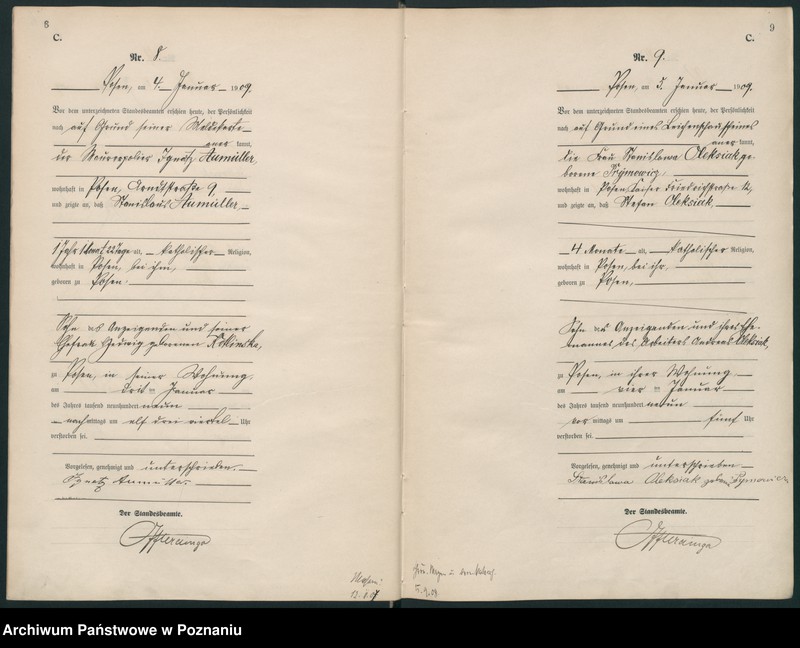 8
C.
Nr. 8.
Posen, am 4. Januar 1909.
Vor dem unterzeichneten Standesbeamten erschien heute, der Persönlichkeit
nach auf Grund seiner Meldekarte
aner kannt,
der Maurerpolier Ignatz Aumüller,
wohnhaft in Posen, Arndtstraße 9,
und zeigte an, daß Stanislaus Aumüller,
1 Jahr 1 Monat 22 Tage alt, katholischer Religion,
wohnhaft in Posen, bei ihm,
geboren zu Posen,
Sohn des Anzeigenden und seiner
Ehefrau Hedwig geborenen
zu Posen, in seiner Wohnung,
am drit ten Januar
des Jahres tausend neunhundert neun
nachmittags um elf drei viertel Uhr
verstorben sei.
Vorgelesen, genehmigt und unterschrieben.
Ignatz Aumüller
Der Standesbeamte.
9
C.
Nr. 9.
Posen, am 5. Januar 1909.
Vor dem unterzeichneten Standesbeamten erschien heute, der Persönlichkeit
nach auf Grund eines Leichenschauscheines
aner kannt,
die Frau Stanislawa Oleksiak ge-
borene Szymowicz,
wohnhaft in Posen, Kaiser Friedrichstraße
und zeigte an, daß Stefan Oleksiak,
4 Monate alt, katholischer Religion,
wohnhaft in Posen, bei ihr,
geboren zu Posen,
Sohn des Anzeigenden und ihres Ehe-
mannes des Arbeiters Andreas Oleksiak,
zu Posen, in ihrer Wohnung
am vier ten Januar
des Jahres tausend neunhundert neun
vor mittags um fünf Uhr
verstorben sei.
Vorgelesen, genehmigt und unterschrieben
Stanislawa Oleksiak
Der Standesbeamte.
Archiwum Państwowe w Poznaniu